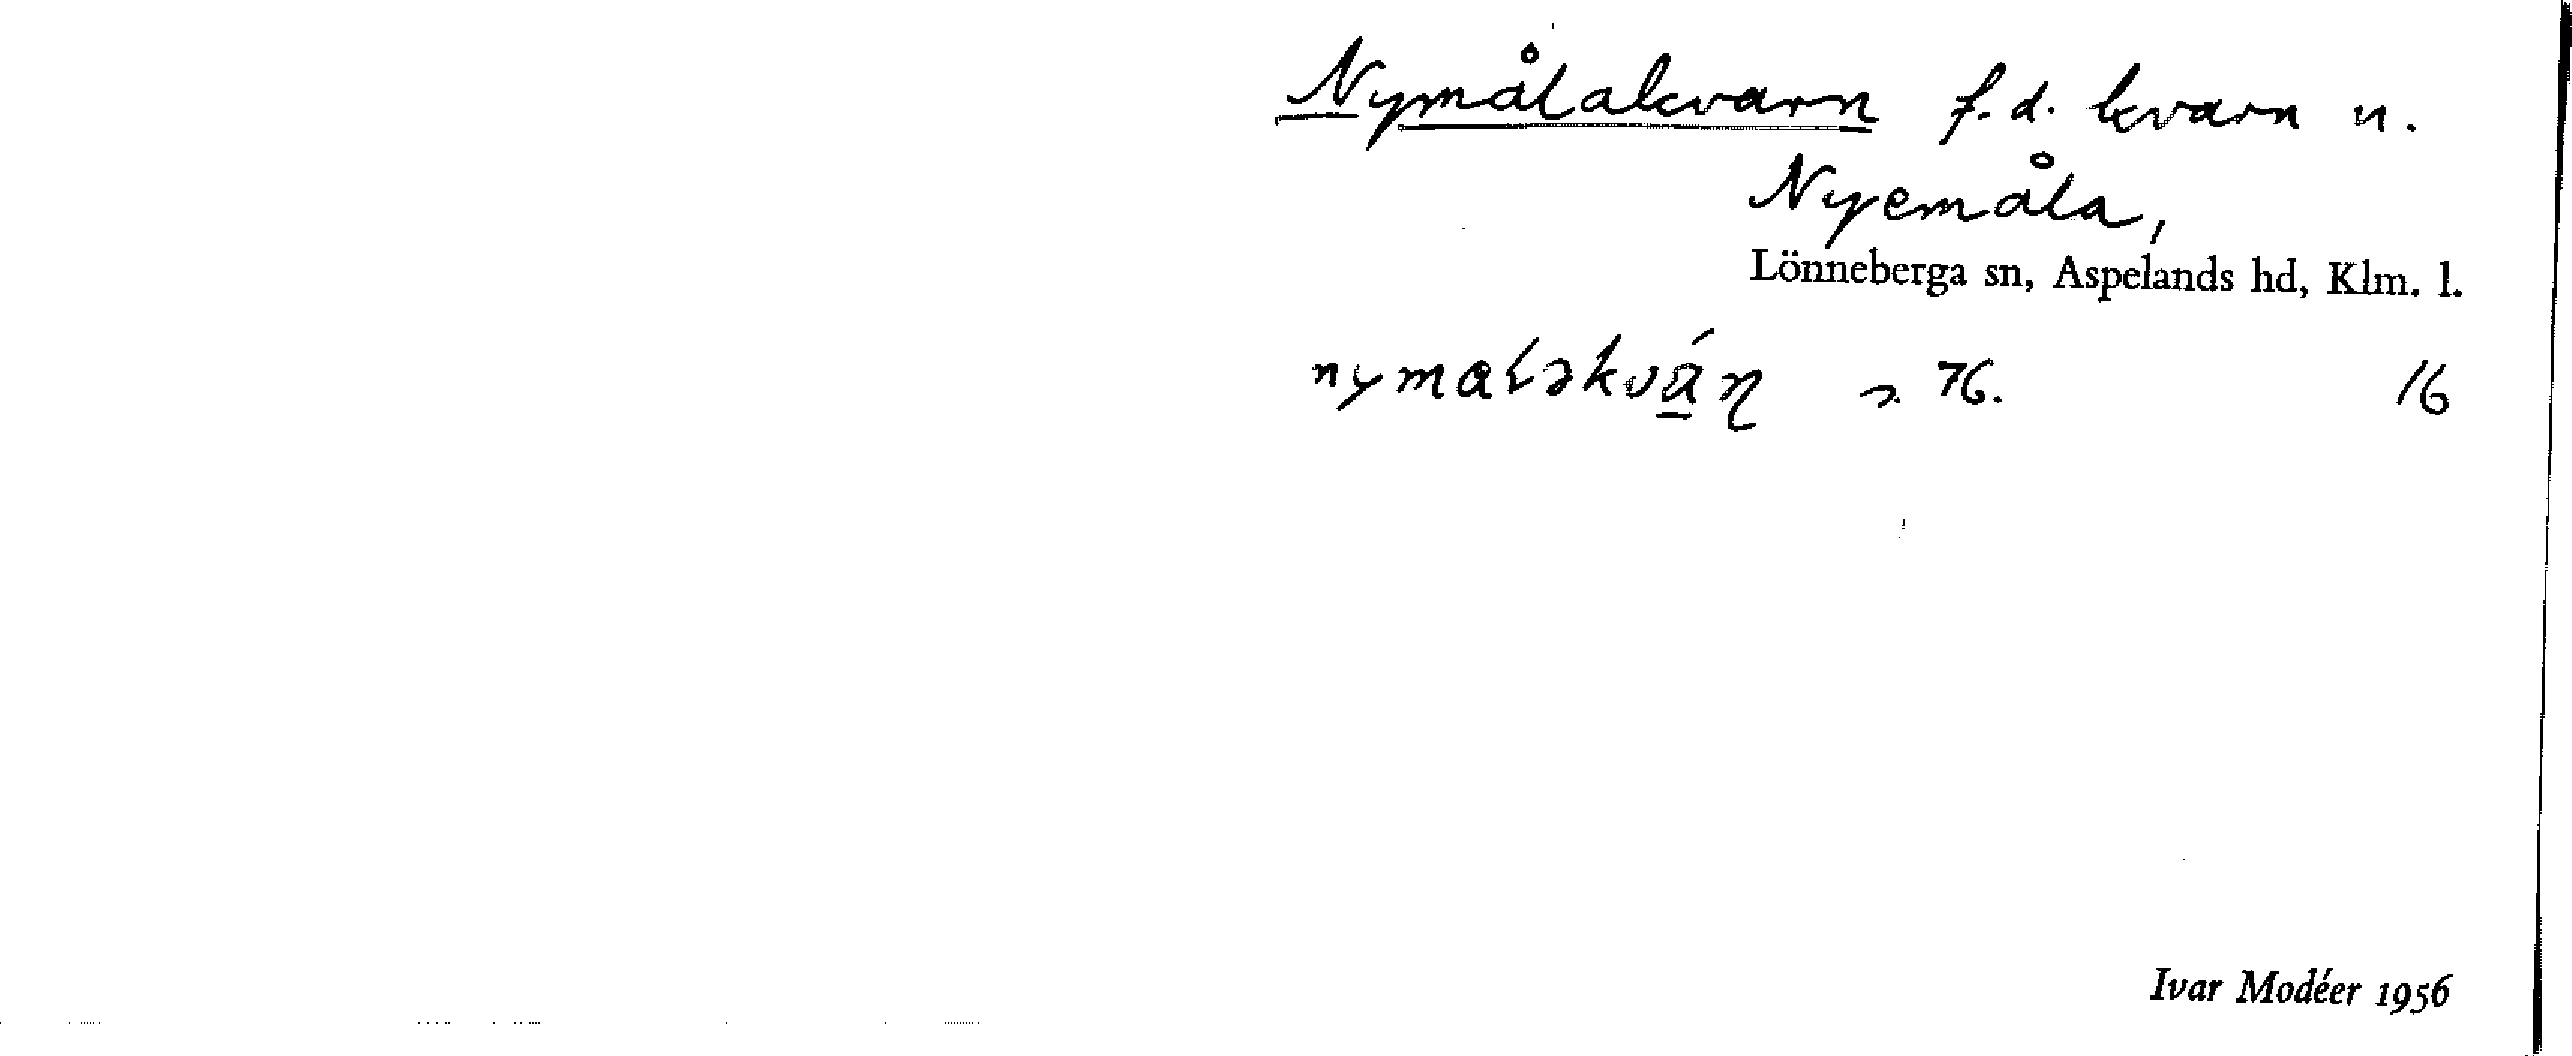 Nymålakvarn f.d. kvarn u.
Nyemåla,
Lönneberga sn, Aspelands hd, Klm. l.
76. 16
Ivar Modéer 1956